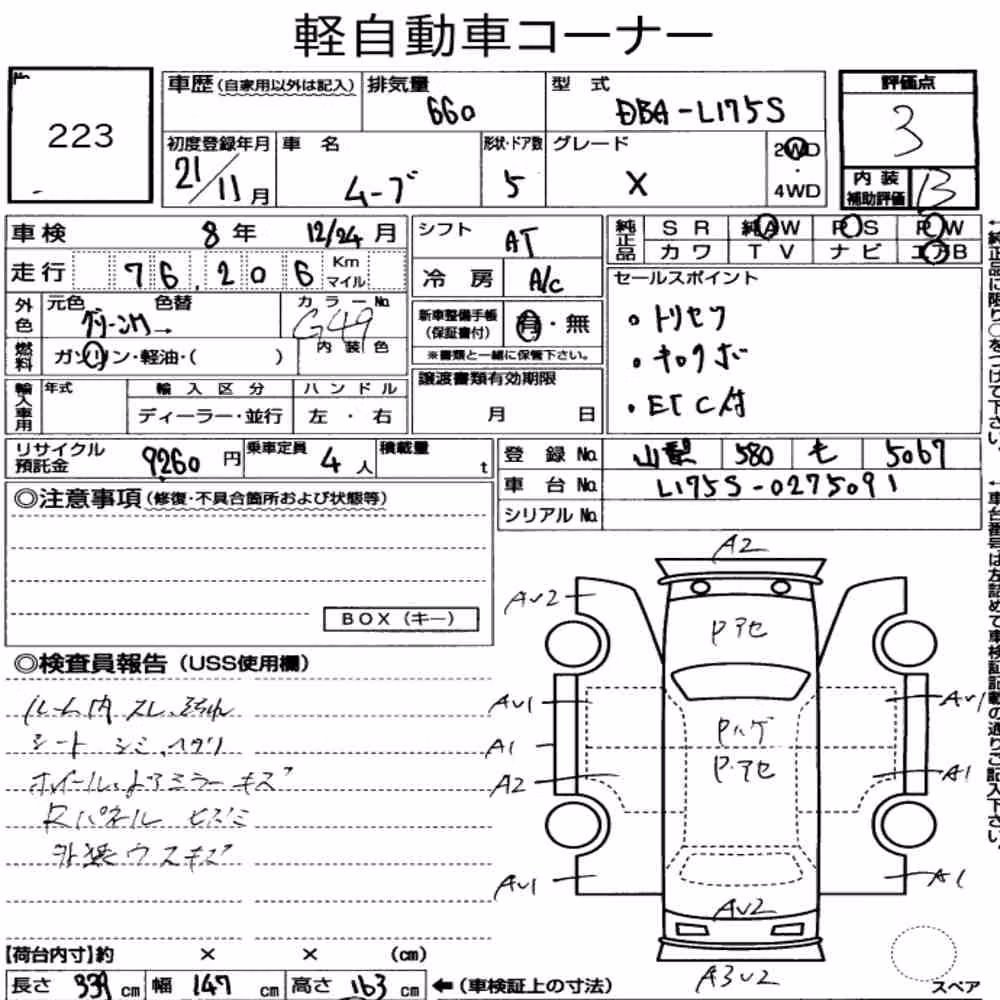 軽自動車コーナー
No
223
車歴(自家用以外は記入) 排気量 660 型式 DBA-L175S
評価点 3
初度登録年月 21/11月 車名 ムーブ 形状・ドア数 5 グレード X 2WD・4WD
内装補助評価 B
車検 8年 12/24月
走行 76,206 Km マイル
シフト AT
冷房 A/C
純正品 SR 純AW PS PW
カワ TV ナビ エアB
外色 元色 グリーンM→ 色替 カラーNo G49
燃料 ガソリン・軽油・( ) 内装色
新車整備手帳(保証書付) 有・無
※書類と一緒に保管下さい。
セールスポイント
・トリセツ
・キロクボ
・ETC付
輸入車用 年式 輸入区分 ハンドル
ディーラー・並行 左・右
譲渡書類有効期限
月 日
リサイクル預託金 9260円 乗車定員 4人 積載量 t
登録No. 山梨 580 も 5067
車台No. L175S-0275091
シリアルNo.
◎注意事項(修復・不具合箇所および状態等)
BOX(キー)
◎検査員報告(USS使用欄)
ルーム内 スレ、ヨゴレ
シート シミ、ヘタリ
ホイール、ドアミラー キズ
Rパネル ヒズミ
外装ウスキズ
A2
AV2
Pアセ
AV1
AV1
A1
Pハゲ
P・アセ
A2
A1
AV1
A1
AV2
A3V2
スペア
【荷台内寸】約 × × (cm)
長さ 339cm 幅 147cm 高さ 163cm ←(車検証上の寸法)
←純正品に限り○をつけて下さい。
←車台番号は左詰めで車検証記載の通りご記入下さい。